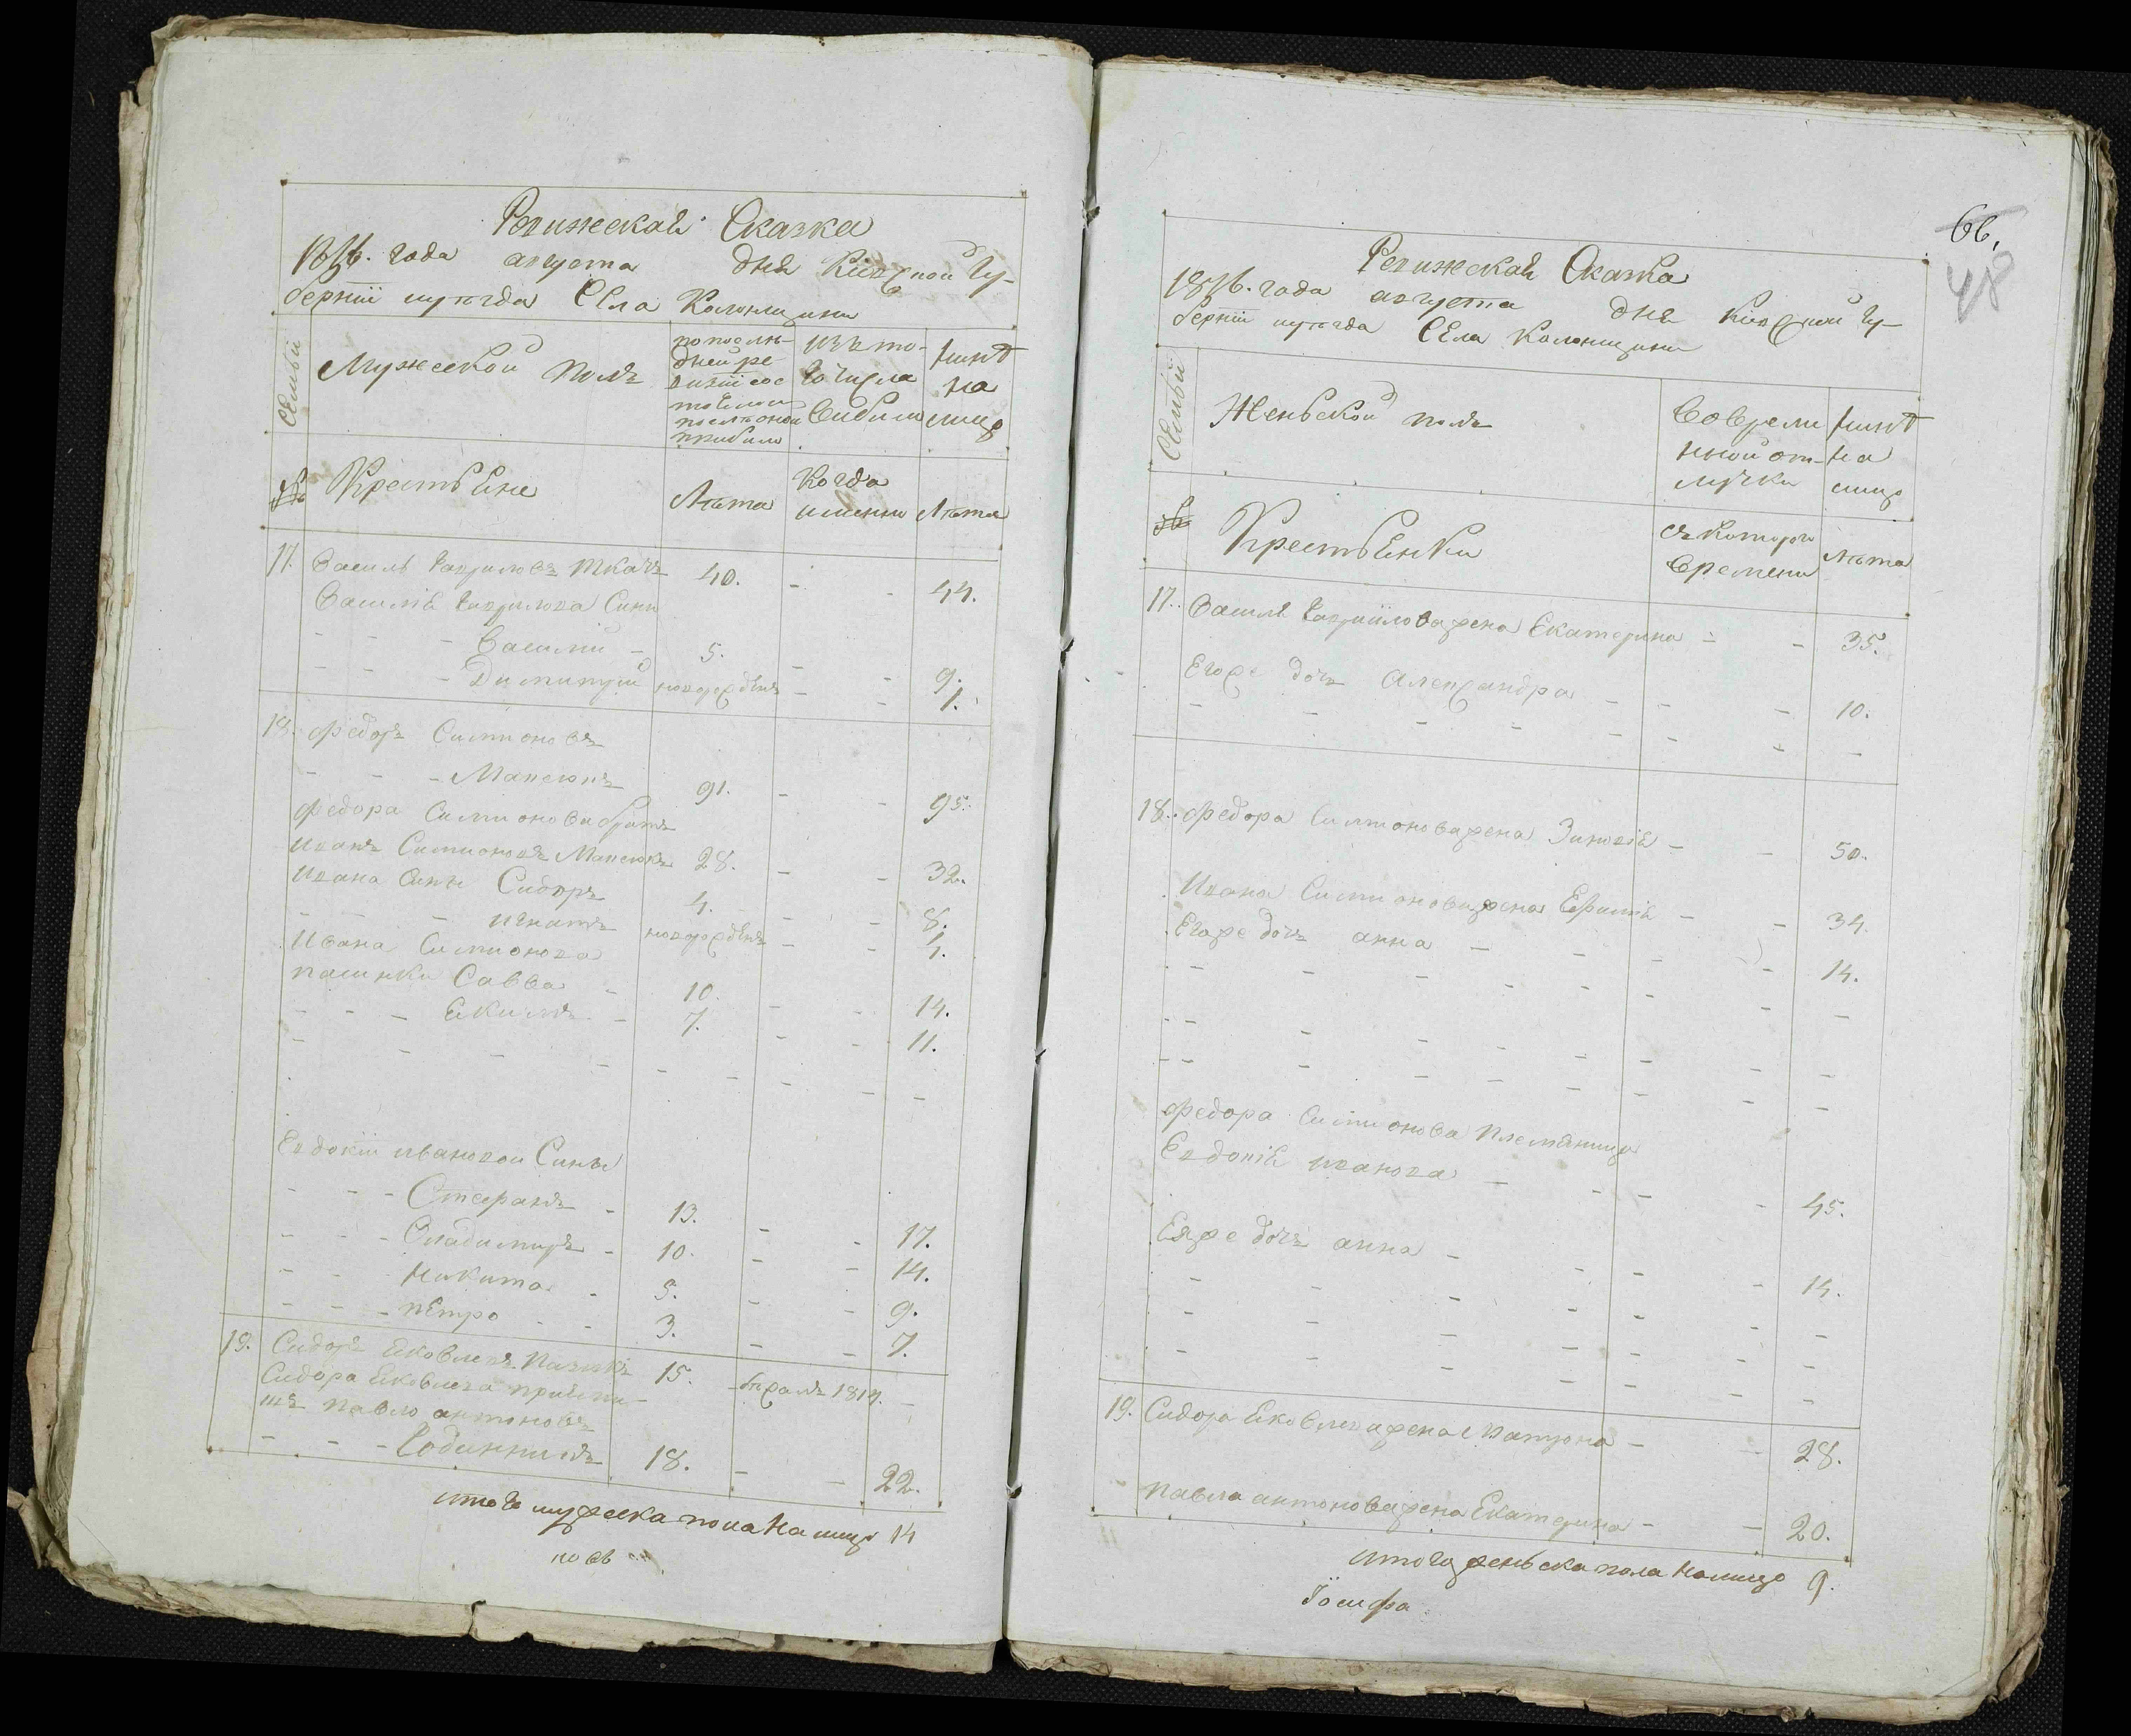 Ревижская Сказка
1816. года августа дня Кіевской гу-
берніи и уезда Села Колонщини
Семьи
Мужескои полъ
по послѣ-
дней ре
визіи сос
тояло и
после оной
прибило
изъ то-
го числа
вибили
нинѣ
на
лицо
№
Крестьяне
Лѣта
Когда
именни
Лѣта
17. Василь Гаврилов Ткачъ 40. - - 44.
Василія Гаврилова Сини
- - - Василий - 5. - - 9.
- - - Димитрий новорожденъ - - 1.
18. Федоръ Симионовъ
- - - Мапсюкъ 91. - - 95.
Федора Симионова братъ
Иванъ Симионовъ Мапсюкъ 28. - - 32.
Ивана Сини Сидоръ 4. - - 8.
- - - Игнатъ новорожденъ - - 1.
Ивана Симионова
пасинки Савва - 10. - - 14.
- - - Екимъ - 7. - - 11.
Евдокіи Ивановой Сини
- - - Стефанъ - 13. - - 17.
- - - Владимиръ - 10. - - 14.
- - - Никита - 5. - - 9.
- - - Петро - - 3. - - 7.
19. Сидоръ Яковлевъ 15. 1814. -
Сидора Яковлева прийми-
шъ Павло Антоновъ
- - - 18. - - 22.
итого мужеска пола на лицо 14
66.
48
Ревижская Сказка
1816. года августа дня Кіевской гу-
берніи и уезда Села Колонщини
Семьи
Женьской полъ
Во време
нной от-
лучки
нинѣ
на
лицо
№
Крестьянки
съ которого
времени
лѣта
17. Василя Гавриилова жена Екатерина - - 35.
Егоже дочь Александра - - - 10.
18. Федора Симионова жена Зиновія - - 50.
Ивана Симионова жена Ефимія - - 34.
Егоже дочь Анна - - - - 14.
Федора Симионова племянница
Евдокія Иванова - - - - 45.
Еяже дочь Анна - - - - 14.
19. Сидора Яковлева жена Матрона - - 28.
Павла Антонова жена Екатерина - - 20.
итого женьска пола на лицо 9.
Іосифа